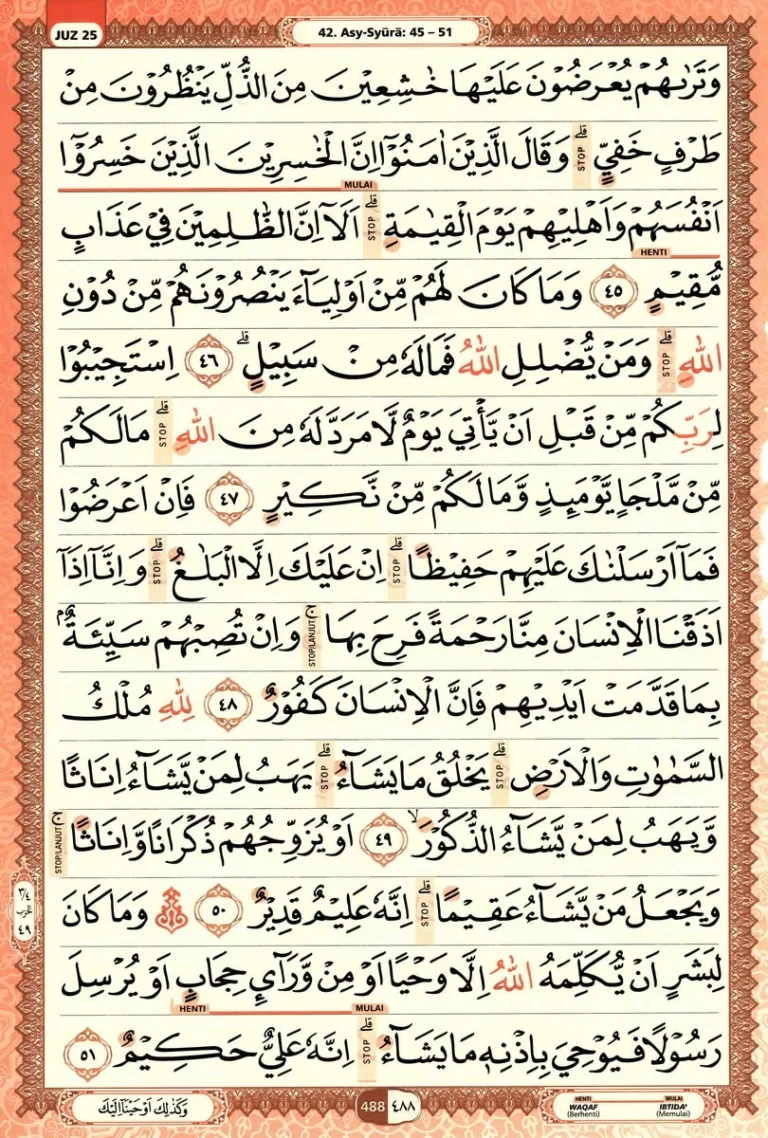 JUZ 25
42. Asy-Syūrā: 45 – 51
وَتَرٰىهُمْ يُعْرَضُوْنَ عَلَيْهَا خٰشِعِيْنَ مِنَ الذُّلِّ يَنْظُرُوْنَ مِنْ
طَرْفٍ خَفِيٍّ ۗ STOP وَقَالَ الَّذِيْنَ اٰمَنُوْٓا اِنَّ الْخٰسِرِيْنَ الَّذِيْنَ خَسِرُوْٓا
MULAI
اَنْفُسَهُمْ وَاَهْلِيْهِمْ يَوْمَ الْقِيٰمَةِ ۗ STOP اَلَآ اِنَّ الظّٰلِمِيْنَ فِيْ عَذَابٍ
HENTI
مُّقِيْمٍ ٤٥ وَمَا كَانَ لَهُمْ مِّنْ اَوْلِيَاۤءَ يَنْصُرُوْنَهُمْ مِّنْ دُوْنِ
اللّٰهِ ۗ STOP وَمَنْ يُّضْلِلِ اللّٰهُ فَمَا لَهٗ مِنْ سَبِيْلٍ ۗ ٤٦ اِسْتَجِيْبُوْا
لِرَبِّكُمْ مِّنْ قَبْلِ اَنْ يَّأْتِيَ يَوْمٌ لَّا مَرَدَّ لَهٗ مِنَ اللّٰهِ ۗ STOP مَا لَكُمْ
مِّنْ مَّلْجَاٍ يَّوْمَىِٕذٍ وَّمَا لَكُمْ مِّنْ نَّكِيْرٍ ٤٧ فَاِنْ اَعْرَضُوْا
فَمَآ اَرْسَلْنٰكَ عَلَيْهِمْ حَفِيْظًا ۗ STOP اِنْ عَلَيْكَ اِلَّا الْبَلٰغُ ۗ STOP وَاِنَّآ اِذَآ
اَذَقْنَا الْاِنْسَانَ مِنَّا رَحْمَةً فَرِحَ بِهَا ۚ STOP/LANJUT وَاِنْ تُصِبْهُمْ سَيِّئَةٌ ۢ
بِمَا قَدَّمَتْ اَيْدِيْهِمْ فَاِنَّ الْاِنْسَانَ كَفُوْرٌ ٤٨ لِلّٰهِ مُلْكُ
السَّمٰوٰتِ وَالْاَرْضِ ۗ STOP يَخْلُقُ مَا يَشَاۤءُ ۗ STOP يَهَبُ لِمَنْ يَّشَاۤءُ اِنَاثًا
وَّيَهَبُ لِمَنْ يَّشَاۤءُ الذُّكُوْرَ ۙ ٤٩ اَوْ يُزَوِّجُهُمْ ذُكْرَانًا وَّاِنَاثًا ۚ STOP/LANJUT
وَيَجْعَلُ مَنْ يَّشَاۤءُ عَقِيْمًا ۗ STOP اِنَّهٗ عَلِيْمٌ قَدِيْرٌ ٥٠ وَمَا كَانَ
لِبَشَرٍ اَنْ يُّكَلِّمَهُ اللّٰهُ اِلَّا وَحْيًا اَوْ مِنْ وَّرَاۤئِ حِجَابٍ اَوْ يُرْسِلَ
HENTI MULAI
رَسُوْلًا فَيُوْحِيَ بِاِذْنِهٖ مَا يَشَاۤءُ ۗ STOP اِنَّهٗ عَلِيٌّ حَكِيْمٌ ٥١
٣/٤
الحزب
٤٩
وَكَذٰلِكَ اَوْحَيْنَآ اِلَيْكَ
488 ٤٨٨
HENTI MULAI
WAQAF IBTIDA'
(Berhenti) (Memulai)